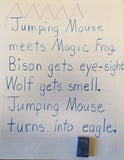 Jumping Mouse
meets Magic Frog.
Bison gets eye-sight
Wolf gets smell.
Jumping Mouse
turns into eagle.